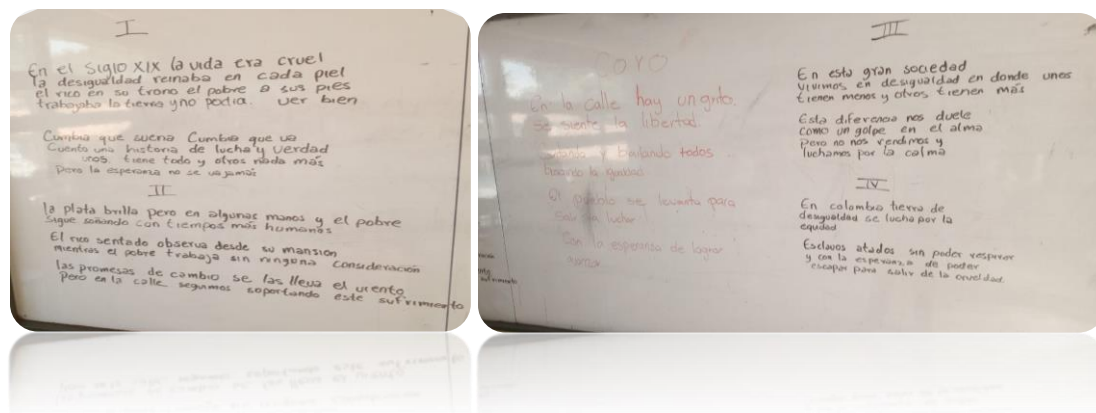 I
En el siglo XIX la vida era cruel
la desigualdad reinaba en cada piel
el rico en su trono el pobre a sus pies
trabajaba la tierra y no podia. ver bien
Cumbia que suena Cumbia que va
Cuento una historia de lucha y verdad
unos tiene todo y otros nada más
Pero la esperanza no se va jamás
II
la plata brilla pero en algunas manos y el pobre
sigue soñando con tiempos más humanos
El rico sentado observa desde su mansion
mientras el pobre trabaja sin ninguna consideración
las promesas de cambio se las lleva el viento
Pero en la calle seguimos soportando este sufrimiento
Coro
En la calle hay un grito.
se siente la libertad.
y bailando todos
buscando la igualdad
El pueblo se levanta para
lucha
Con la esperanza de lograr
III
En esta gran sociedad
vivimos en desigualdad en donde unos
tienen menos y otros tienen más
Esta diferencia nos duele
como un golpe en el alma
Pero no nos rendimos y
luchamos por la calma
IV
En colombia tierra de
desigualdad se lucha por la
equidad
Esclavos atados sin poder respirar
y con la esperanza de poder
escapar para salir de la crueldad.